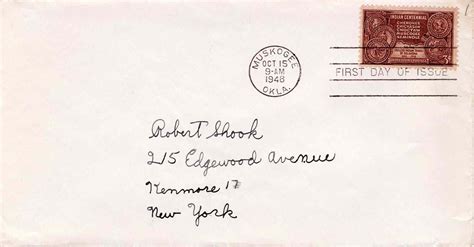 INDIAN CENTENNIAL
CHEROKEES
CHICKASAW
CHOCTAW
MUSCOGEE
SEMINOLE
3¢
MUSKOGEE
OCT 15
9-AM
1948
OKLA.
FIRST DAY OF ISSUE
Robert Shook
215 Edgewood Avenue
Kenmore 17
New York